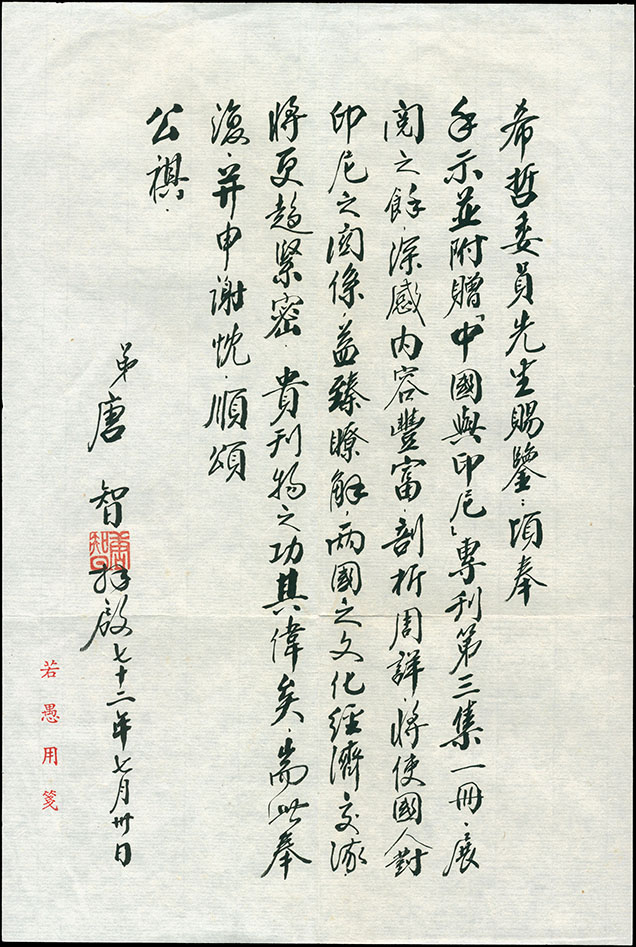 希哲委員先生賜鑒：頃奉
手示並附贈「中國與印尼」專刊第三集一冊，展
閱之餘，深感內容豐富，剖析周詳，將使國人對
印尼之関係，益臻瞭解，兩國之文化經濟交流，
將更趨緊密，貴刊物之功其偉矣，耑此奉
復，并申謝忱，順頌
公祺，
弟唐智拜啟七十二年七月卅日
唐智
若愚用箋